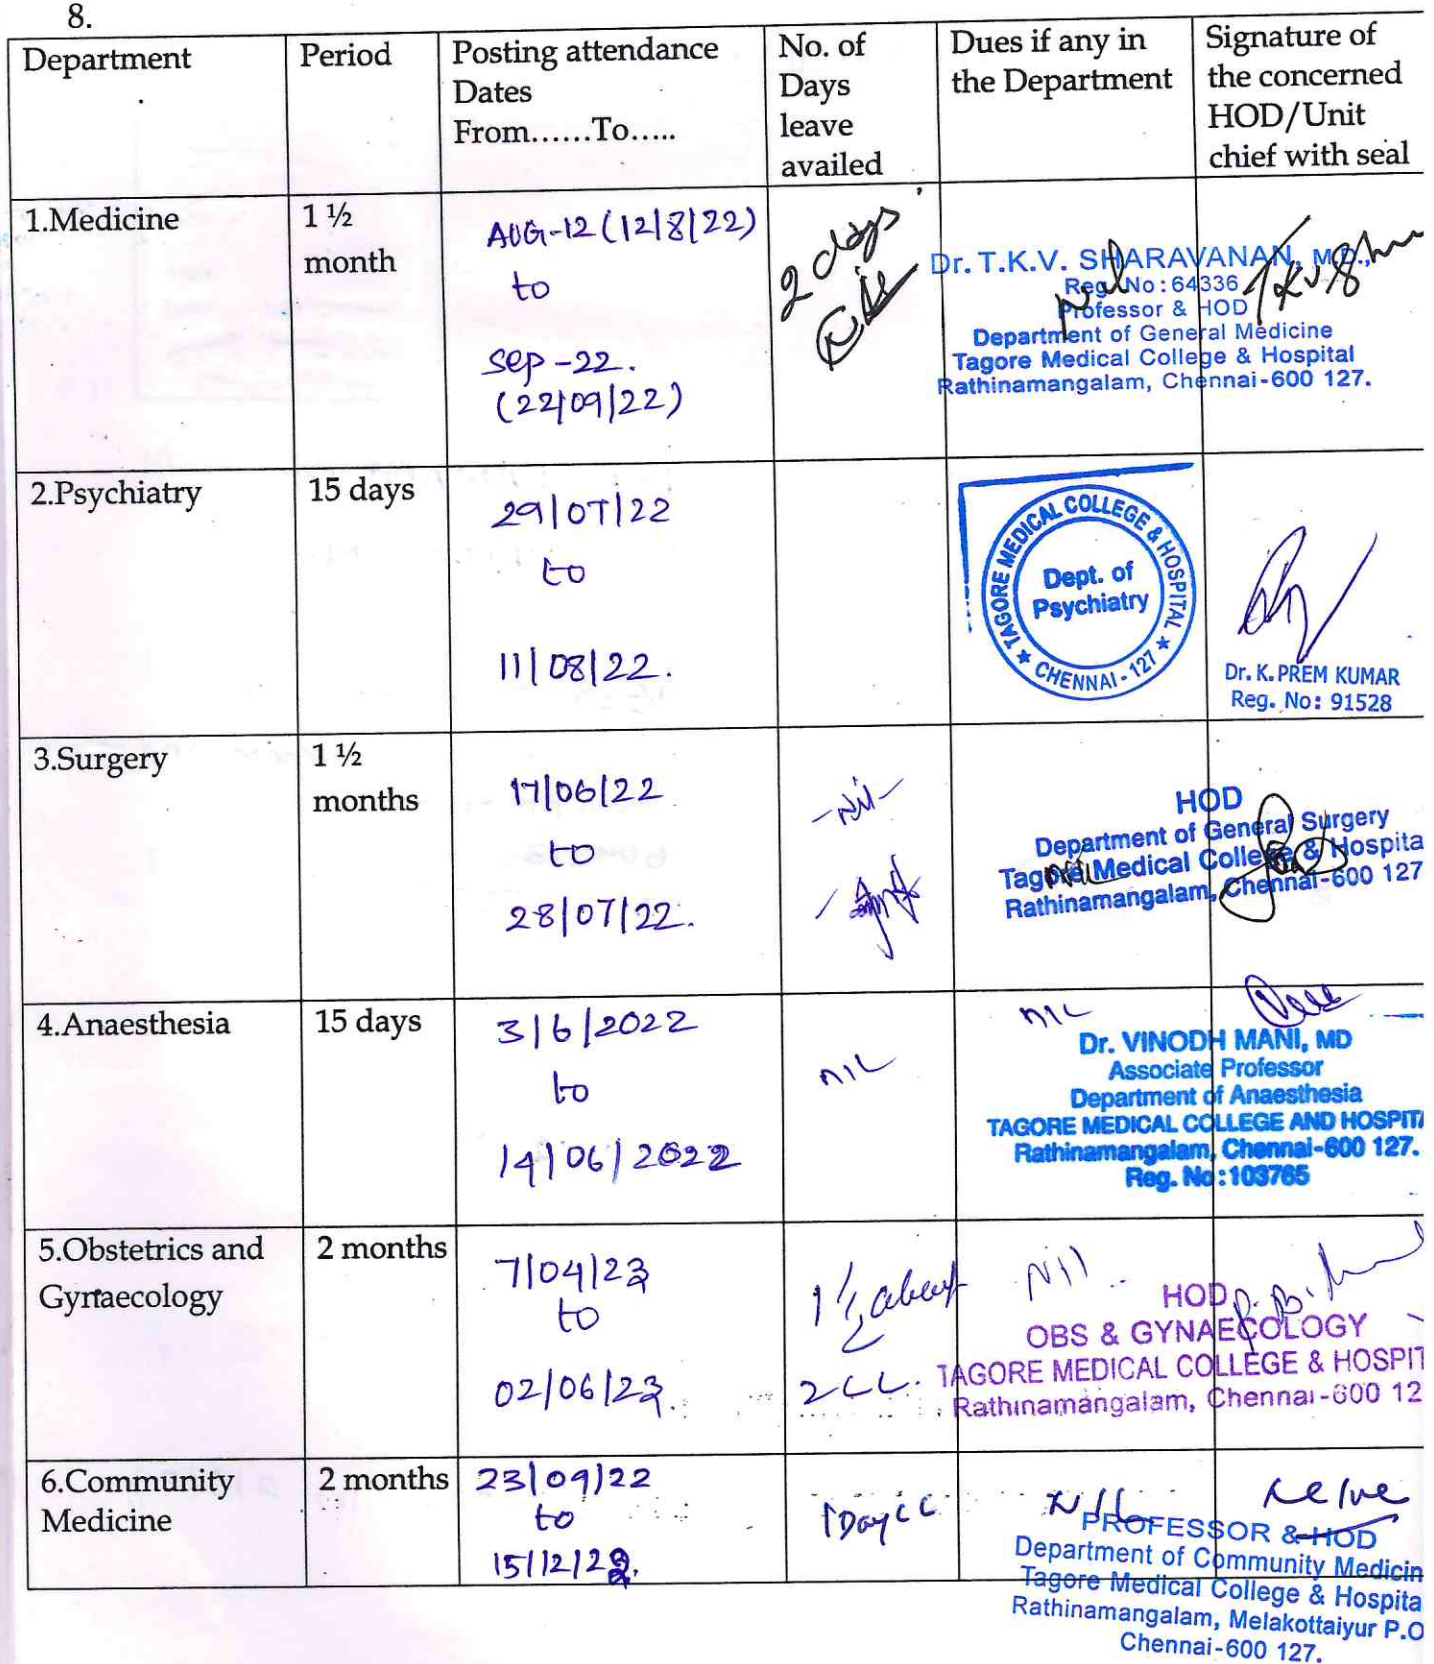 8.
Department
Period
Posting attendance
Dates
From......To.....
No. of
Days
leave
availed
Dues if any in
the Department
Signature of
the concerned
HOD/Unit
chief with seal
1.Medicine
1 ½
month
AUG-12 (12/8/22)
to
Sep-22.
(22/09/22)
2 days
Nil
Dr. T.K.V. SHARAVANAN, M.D.,
Reg. No : 64336
Professor & HOD
Department of General Medicine
Tagore Medical College & Hospital
Rathinamangalam, Chennai-600 127.
2.Psychiatry
15 days
29/07/22
to
11/08/22.
TAGORE MEDICAL COLLEGE & HOSPITAL
CHENNAI - 127
Dept. of
Psychiatry
Dr. K. PREM KUMAR
Reg. No: 91528
3.Surgery
1 ½
months
17/06/22
to
28/07/22.
-Nil-
Nil
HOD
Department of General Surgery
Tagore Medical College & Hospita
Rathinamangalam, Chennai-600 127
4.Anaesthesia
15 days
3/6/2022
to
14/06/2022
NIL
NIL
Dr. VINODH MANI, MD
Associate Professor
Department of Anaesthesia
TAGORE MEDICAL COLLEGE AND HOSPITA
Rathinamangalam, Chennai-600 127.
Reg. No : 103765
5.Obstetrics and
Gynaecology
2 months
7/04/23
to
02/06/23.
1 ½
2 CL.
Nil
HOD
OBS & GYNAECOLOGY
TAGORE MEDICAL COLLEGE & HOSPIT
Rathinamangalam, Chennai-600 12
6.Community
Medicine
2 months
23/09/22
to
15/12/22.
1 Day CL
Nil
PROFESSOR & HOD
Department of Community Medicin
Tagore Medical College & Hospita
Rathinamangalam, Melakottaiyur P.O
Chennai-600 127.